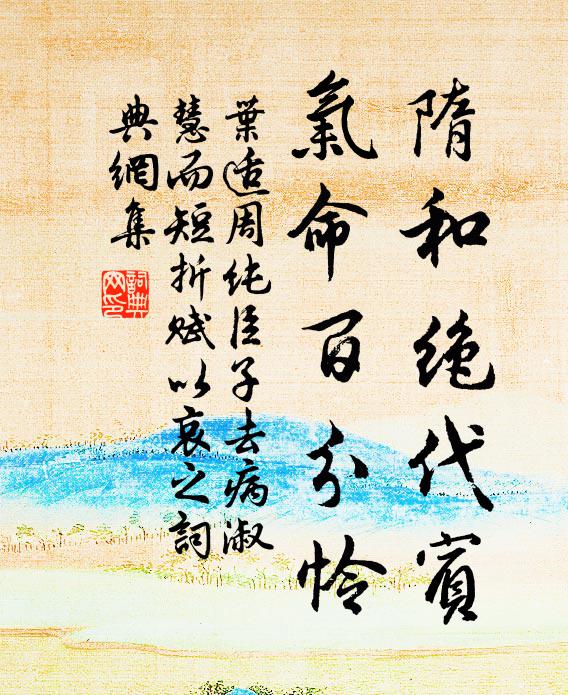 隋和絶代賓
氣命百分怜
葉适周純臣子去病淑
慧而短折賦以哀之詞
典網集
詞典網印